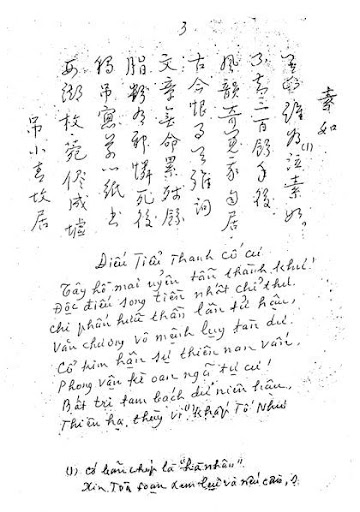 3
吊小青故居
西湖枚苑侭成墟
獨吊窓前一紙書
脂粉有神憐死後
文章無命累殘餘
古今恨事天難問
風韻奇冤我自居
不知三百餘年後
天下誰為泣素如?
(1)
素如
Điếu Tiểu Thanh cố cư
Tây hồ mai uyển tẫn thành khư!
Độc điếu song tiền nhất chỉ thư.
chi phấn hữu thần lân tử hậu,
văn chương vô mệnh lụy tàn dư.
Cổ kim hận sự thiên nan vấn,
Phong vận kì oan ngã tự cư!
Bất tri tam bách dư niên hậu,
Thiên hạ, thùy vi "khấp Tố Như
(1) có bản chép là "hà nhân".
Xin Tòa soạn xem lại và nếu cần, ?